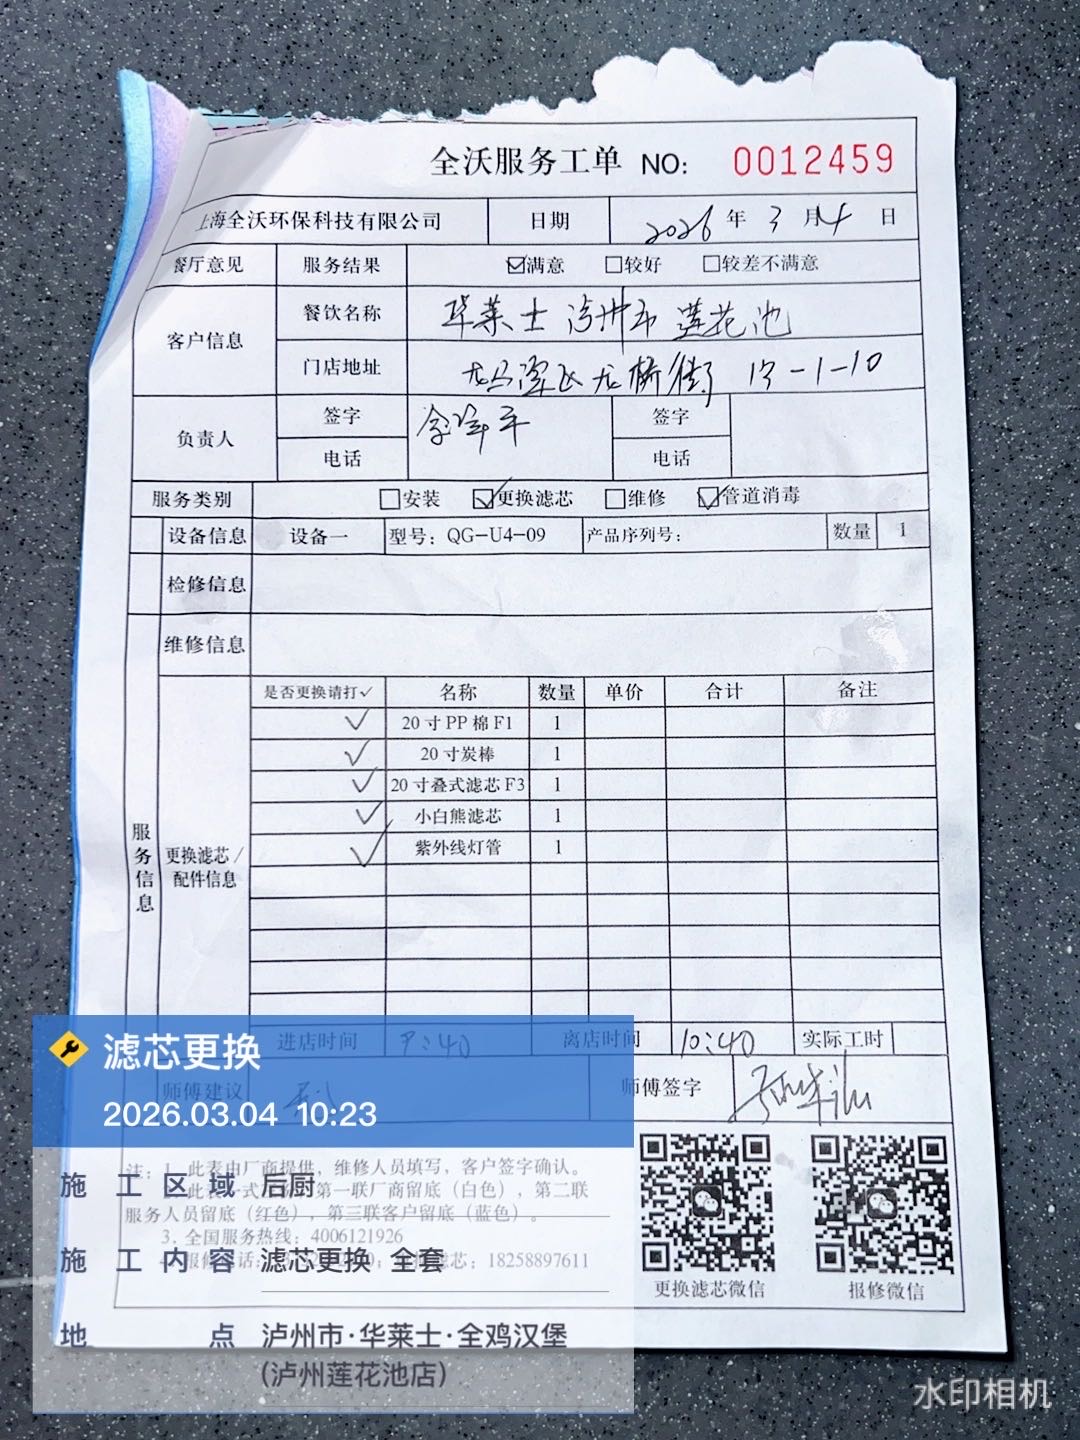 全沃服务工单 NO: 0012459
上海全沃环保科技有限公司 日期 2026年3月4日
餐厅意见 服务结果 ☑满意 □较好 □较差不满意
客户信息 餐饮名称 华莱士泸州市莲花池
门店地址 龙马潭区龙桥街 13-1-10
负责人 签字 签字
电话 电话
服务类别 □安装 ☑更换滤芯 □维修 ☑管道消毒
设备信息 设备一 型号：QG-U4-09 产品序列号： 数量 1
检修信息
维修信息
服务信息
更换滤芯/配件信息
是否更换请打✓ 名称 数量 单价 合计 备注
✓ 20寸PP棉F1 1
✓ 20寸炭棒 1
✓ 20寸叠式滤芯F3 1
✓ 小白熊滤芯 1
✓ 紫外线灯管 1
进店时间 9:40 离店时间 10:40 实际工时
师傅建议 师傅签字
注：1、此表由厂商提供，维修人员填写，客户签字确认。
第一联厂商留底（白色），第二联
服务人员留底（红色），第三联客户留底（蓝色）。
3、全国服务热线：4006121926
滤芯：18258897611
更换滤芯微信 报修微信
滤芯更换
2026.03.04 10:23
施工区域 后厨
施工内容 滤芯更换 全套
地点 泸州市·华莱士·全鸡汉堡
(泸州莲花池店)
水印相机